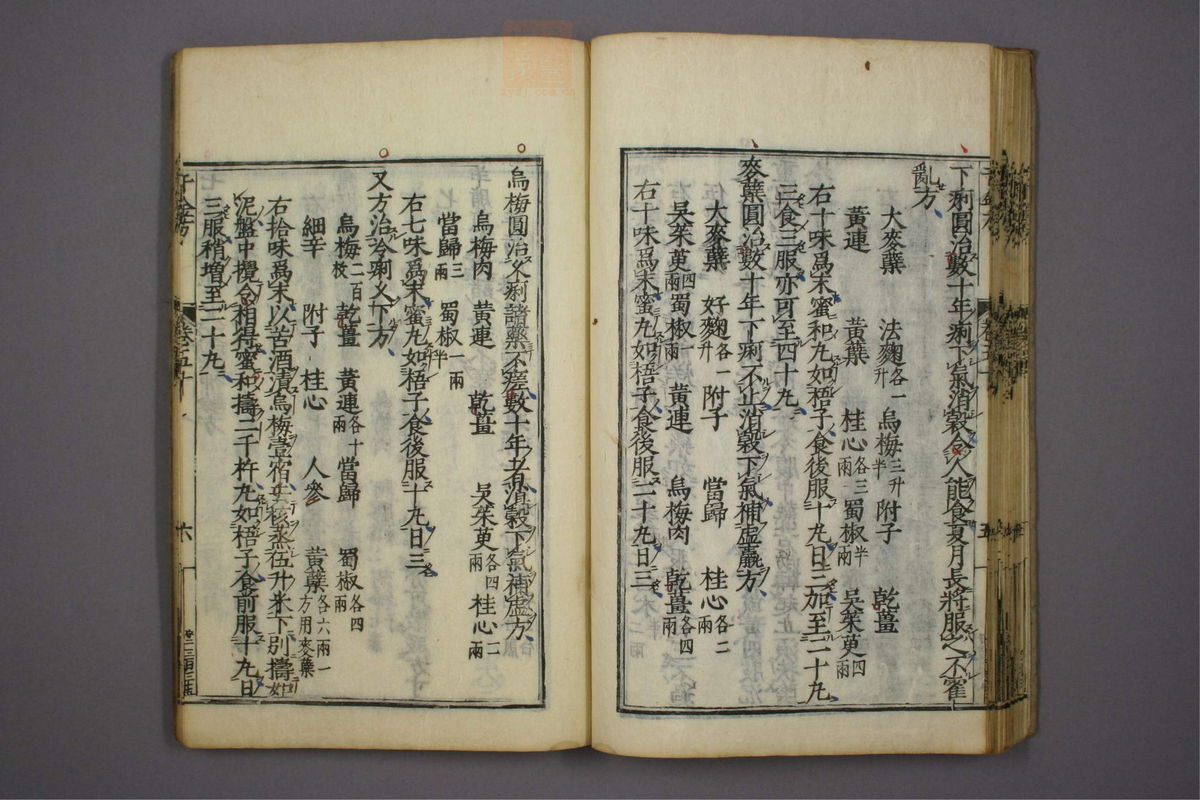 下痢圓治數十年痢下氣消穀令人能食夏月長將服之不霍
亂方
大麥蘖 法麴各一升 烏梅三升半 附子 乾薑
黃連 黃蘗 桂心各三兩 蜀椒半兩 吳茱萸四兩
右十味為末蜜和丸如梧子食後服十丸日三加至二十丸
三食三服亦可至四十丸
麥蘖圓治數十年下痢不止消穀下氣補虛羸方
大麥蘖 好麴各一升 附子 當歸 桂心各二兩
吳茱萸四兩 蜀椒一兩 黃連 烏梅肉 乾薑各四兩
右十味為末蜜丸如梧子食後服二十丸日三
烏梅圓治久痢諸藥不瘥數十年者消穀下氣補虛方
烏梅肉 黃連 乾薑 吳茱萸各四兩 桂心二兩
當歸三兩 蜀椒一兩半
右七味為末蜜丸如梧子食後服十丸日三
又方治冷痢久下方
烏梅二百枚 乾薑 黃連各十兩 當歸 蜀椒各四兩
細辛 附子 桂心 人參 黃蘗各六兩一方用麥蘗
右拾味為末以苦酒漬烏梅壹宿去核蒸伍升米下別擣如
泥盤中攪令相得蜜和擣二千杵丸如梧子食前服十丸日
三服稍增至二十丸
千金方
卷十五
六
五